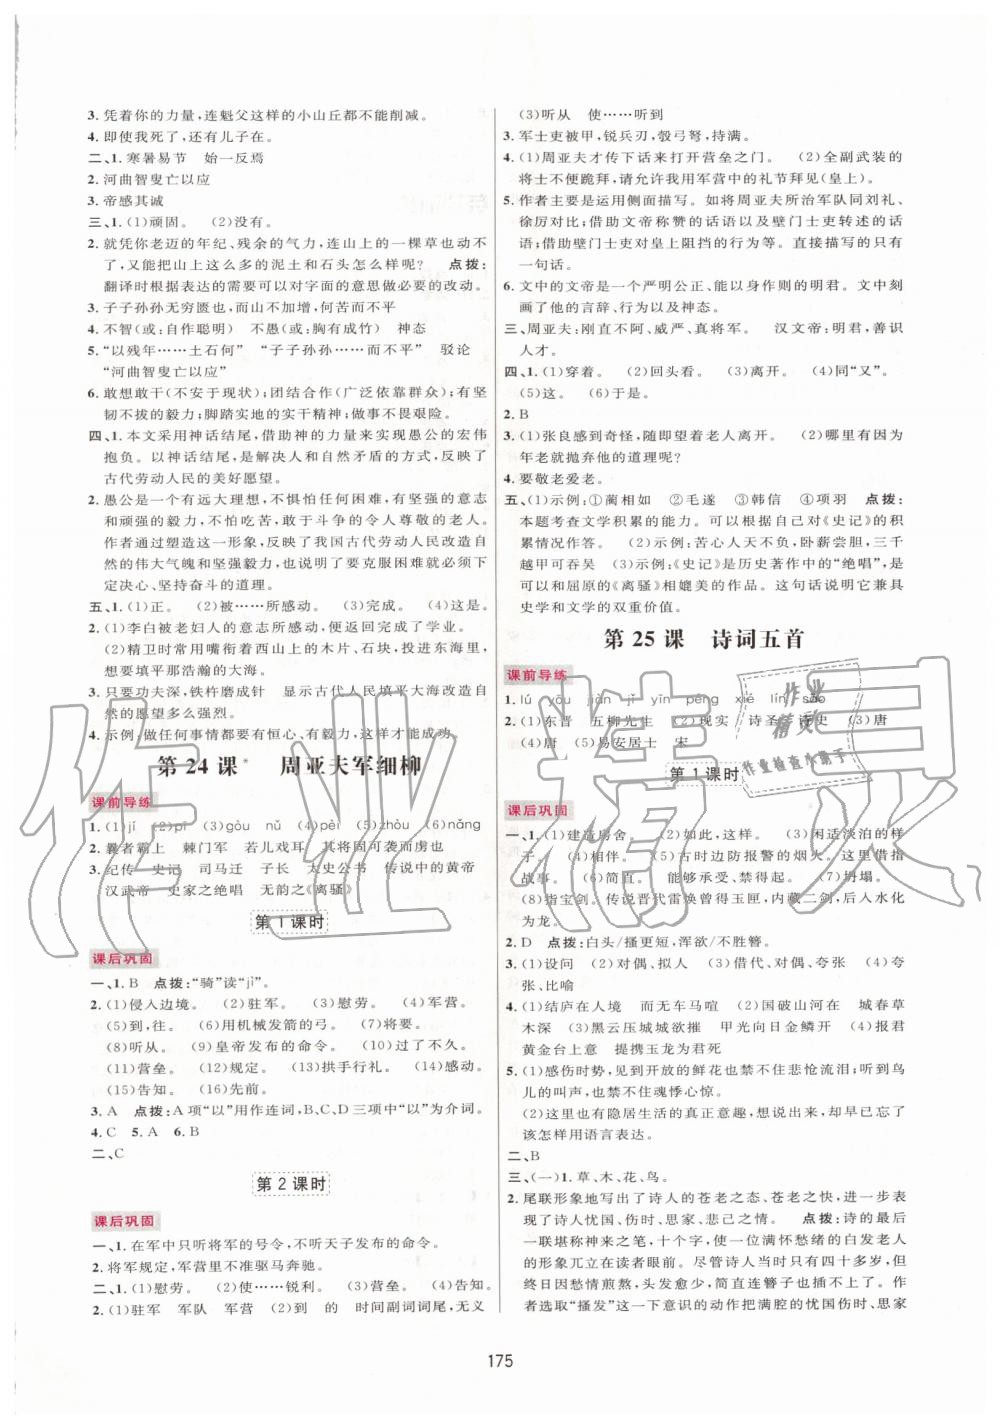 3. 凭着你的力量,连魁父这样的小山丘都不能削减。
4. 即使我死了,还有儿子在。
二、1. 寒暑易节 始一反焉
2. 河曲智叟亡以应
3. 帝感其诚
三、1. (1)顽固。 (2)没有。
2. 就凭你老迈的年纪、残余的气力,连山上的一棵草也动不
了,又能把山上这么多的泥土和石头怎么样呢? 点拨:
翻译时根据表达的需要可以对字面的意思做必要的改动。
3. 子子孙孙无穷匮也,而山不加增,何苦而不平
4. 不智(或:自作聪明) 不愚(或:胸有成竹) 神态
5. “以残年……土石何” “子子孙孙……而不平” 驳论
“河曲智叟亡以应”
6. 敢想敢干(不安于现状);团结合作(广泛依靠群众);有坚
韧不拔的毅力;脚踏实地的实干精神;做事不畏艰险。
四、1. 本文采用神话结尾,借助神的力量来实现愚公的宏伟
抱负。以神话结尾,是解决人和自然矛盾的方式,反映了
古代劳动人民的美好愿望。
2. 愚公是一个有远大理想,不惧怕任何困难,有坚强的意志
和顽强的毅力,不怕吃苦,敢于斗争的令人尊敬的老人。
作者通过塑造这一形象,反映了我国古代劳动人民改造自然
的伟大气魄和坚强毅力,也说明了要克服困难就必须下
定决心、坚持奋斗的道理。
五、1. (1)正。 (2)被……所感动。 (3)完成。 (4)这是。
2. (1)李白被老妇人的意志所感动,便返回完成了学业。
(2)精卫时常用嘴衔着西山上的木片、石块,投到东海里,
想要填平那浩瀚的大海。
3. 只要功夫深,铁杵磨成针 显示古代人民对大海改造自
然的愿望多么强烈。
4. 示例:做任何事情都要有恒心、有毅力,这样才能成功。
第 24 课* 周亚夫军细柳
课前导练
1. (1)jǐ (2)pī (3)gòu nǔ (4)pèi (5)zhòu (6)nǎng
2. 曩者霸上 棘门军 若儿戏耳 其将固可袭而虏也
3. 纪传 史记 司马迁 子长 太史公书 传说中的黄帝
汉武帝 史家之绝唱 无韵之《离骚》
第 1 课时
课后巩固
一、1. B 点拨:“骑”读“jì”。
2. (1)侵入边境。 (2)驻军。 (3)慰劳。 (4)军营。
(5)到,往。 (6)用机械发箭的弓。 (7)将要。
(8)听从。 (9)皇帝发布的命令。 (10)过了不久。
(11)营垒。 (12)规定。 (13)拱手行礼。 (14)感动。
(15)告知。 (16)先前。
3. A 点拨:A 项“以”用作连词,B、C、D 三项中“以”为介词。
4. C 5. A 6. B
二、C
第 2 课时
课后巩固
一、1. 在军中只听将军的号令,不听天子发布的命令。
2. 将军规定,军营里不准驱马奔驰。
二、1. (1)慰劳。 (2)使……锐利。 (3)营垒。 (4)告知。
2. (1)驻军 军队 军营 (2)到 的 时间副词词尾,无义
(3)听从 使……听到
3. 军士吏被甲,锐兵刃,彀弓弩,持满。
4. (1)周亚夫才传下话来打开营垒之门。 (2)全副武装的
将士不便跪拜,请允许我用军营中的礼节拜见(皇上)。
5. 作者主要是运用侧面描写。如将周亚夫所治军队同刘礼、
徐厉对比;借助文帝称赞的话语以及壁门士吏转述的话
语;借助壁门士吏对皇上阻挡的行为等。直接描写的只有
一句话。
6. 文中的文帝是一个严明公正、能以身作则的明君。文中刻
画了他的言辞、行为以及神态。
三、周亚夫:刚直不阿、威严、真将军。 汉文帝:明君,善识
人才。
四、1. (1)穿着。 (2)回头看。 (3)离开。 (4)同“又”。
(5)这。 (6)于是。
2. B
3. (1)张良感到奇怪,随即望着老人离开。 (2)哪里有因为
年老就抛弃他的道理呢?
4. 要敬老爱老。
五、(1)示例:①蔺相如 ②毛遂 ③韩信 ④项羽 点拨:
本题考查文学积累的能力。可以根据自己对《史记》的积
累情况作答。 (2)示例:苦心人天不负,卧薪尝胆,三千
越甲可吞吴 (3)示例:《史记》是历史著作中的“绝唱”,是
可以和屈原的《离骚》相媲美的作品。这句话说明它兼具
史学和文学的双重价值。
第 25 课 诗词五首
课前导练
1. lú yōu jiàn jǐ yīn péng xié lín sāo
2. (1)东晋 五柳先生 (2)现实 诗圣 诗史 (3)唐
(4)唐 (5)易安居士 宋
第 1 课时
课后巩固
一、1. (1)建造房舍。 (2)如此,这样。 (3)闲适淡泊的样
子。 (4)相伴。 (5)古时边防报警的烟火。这里借指
战事。 (6)简直。能够承受、禁得起。 (7)坍塌。
(8)指宝剑。传说晋代雷焕曾得玉匣,内藏二剑,后入水化
为龙。
2. D 点拨:白头/搔更短,浑欲/不胜簪。
3. (1)设问 (2)对偶、拟人 (3)借代、对偶、夸张 (4)夸
张、比喻
4. (1)结庐在人境 而无车马喧 (2)国破山河在 城春草
木深 (3)黑云压城城欲摧 甲光向日金鳞开 (4)报君
黄金台上意 提携玉龙为君死
5. (1)感伤时势,见到开放的鲜花也禁不住悲怆流泪;听到鸟
儿的叫声,也禁不住魂悸心惊。
(2)这里有隐居生活的真正意趣,想要说出,却早已忘了
该怎样用语言表达。
二、B
三、(一)1. 草、木、花、鸟。
2. 尾联形象地写出了诗人的苍老之态、苍老之快,进一步表
现了诗人忧国、伤时、思家、悲己之情。 点拨:诗的最后
一联堪称神来之笔,十个字,使一位满怀愁绪的白发老人
的形象兀立在读者眼前。尽管诗人当时只有四十多岁,但
终日因愁情煎熬,头发愈少,简直连簪子都插不住了。作
者选取“搔发”这一下意识的动作把满腔的忧国伤时、思家
175
作业精灵
作业
精灵
作业检查小助手